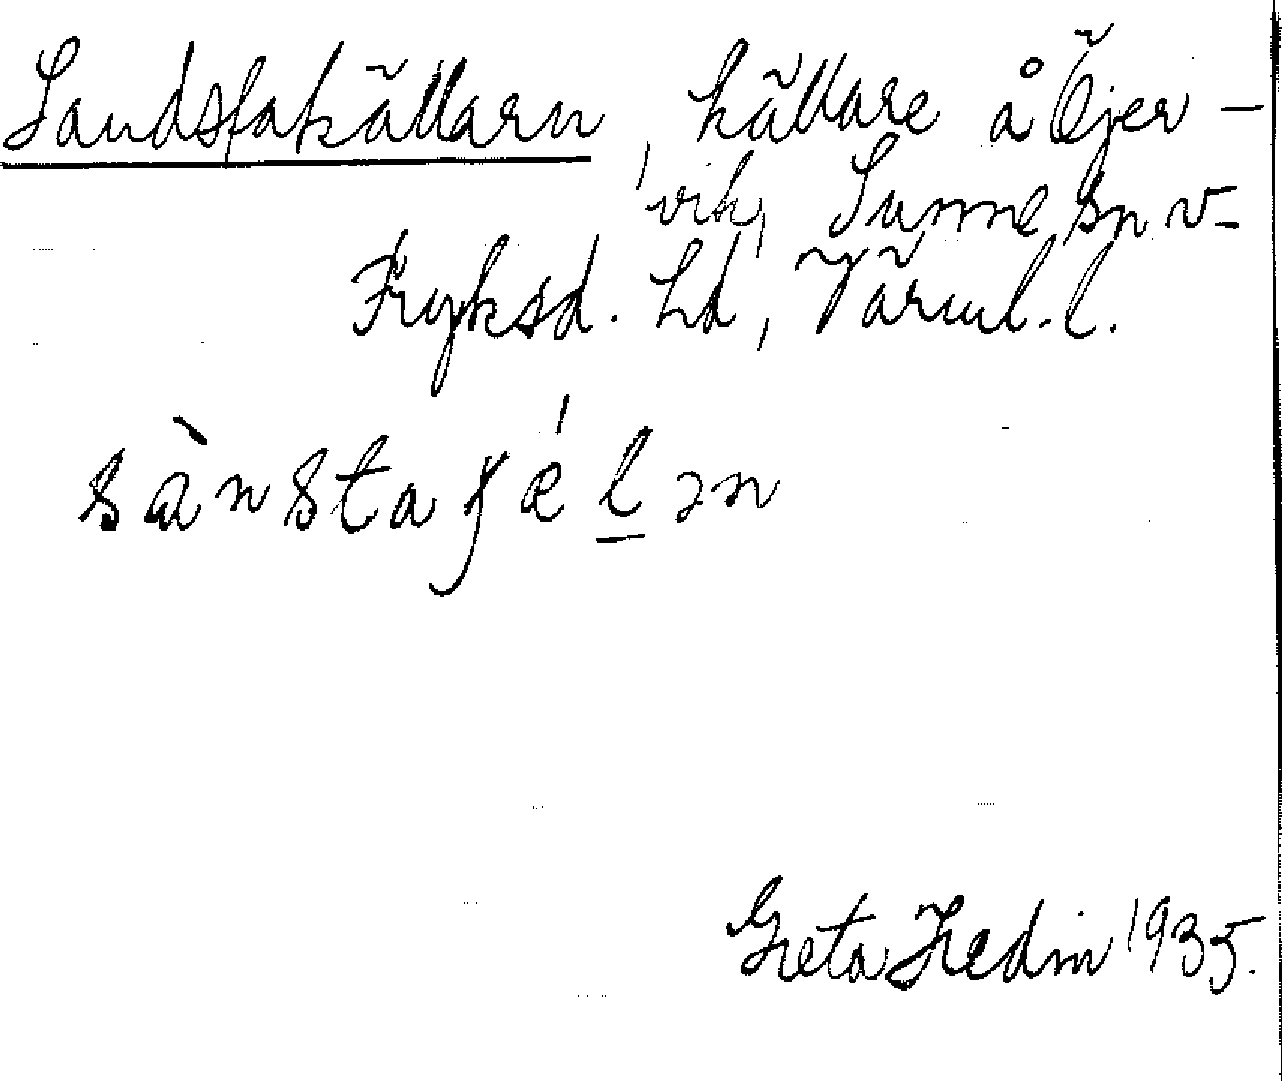 Sandstakällarn, källare å Öjer-
vik, Sunne sn v-
Fryksd. hd, Värml. l.
sànstaɟélən
Greta Hedin 1935.